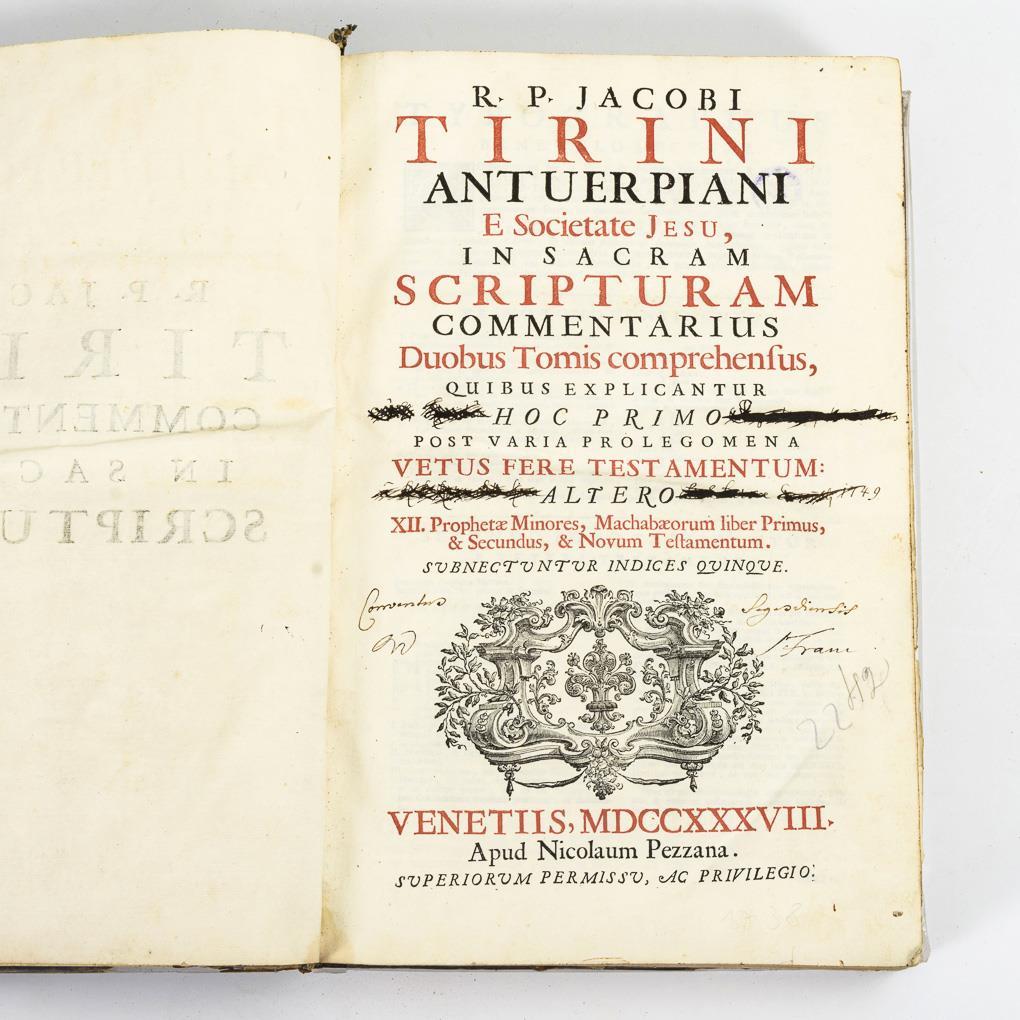 R. P. JACOBI
TIRINI
ANTUERPIANI
E Societate JESU,
IN SACRAM
SCRIPTURAM
COMMENTARIUS
Duobus Tomis comprehenſus,
QUIBUS EXPLICANTUR
HOC PRIMO
POST VARIA PROLEGOMENA
VETUS FERE TESTAMENTUM:
ALTERO 1749
XII. Prophetæ Minores, Machabæorum liber Primus,
& Secundus, & Novum Teſtamentum.
SVBNECTVNTVR INDICES QVINQVE.
Conventus Segediensis
Franc
2242
VENETIIS, MDCCXXXVIII.
Apud Nicolaum Pezzana.
SVPERIORVM PERMISSV, AC PRIVILEGIO.
1738